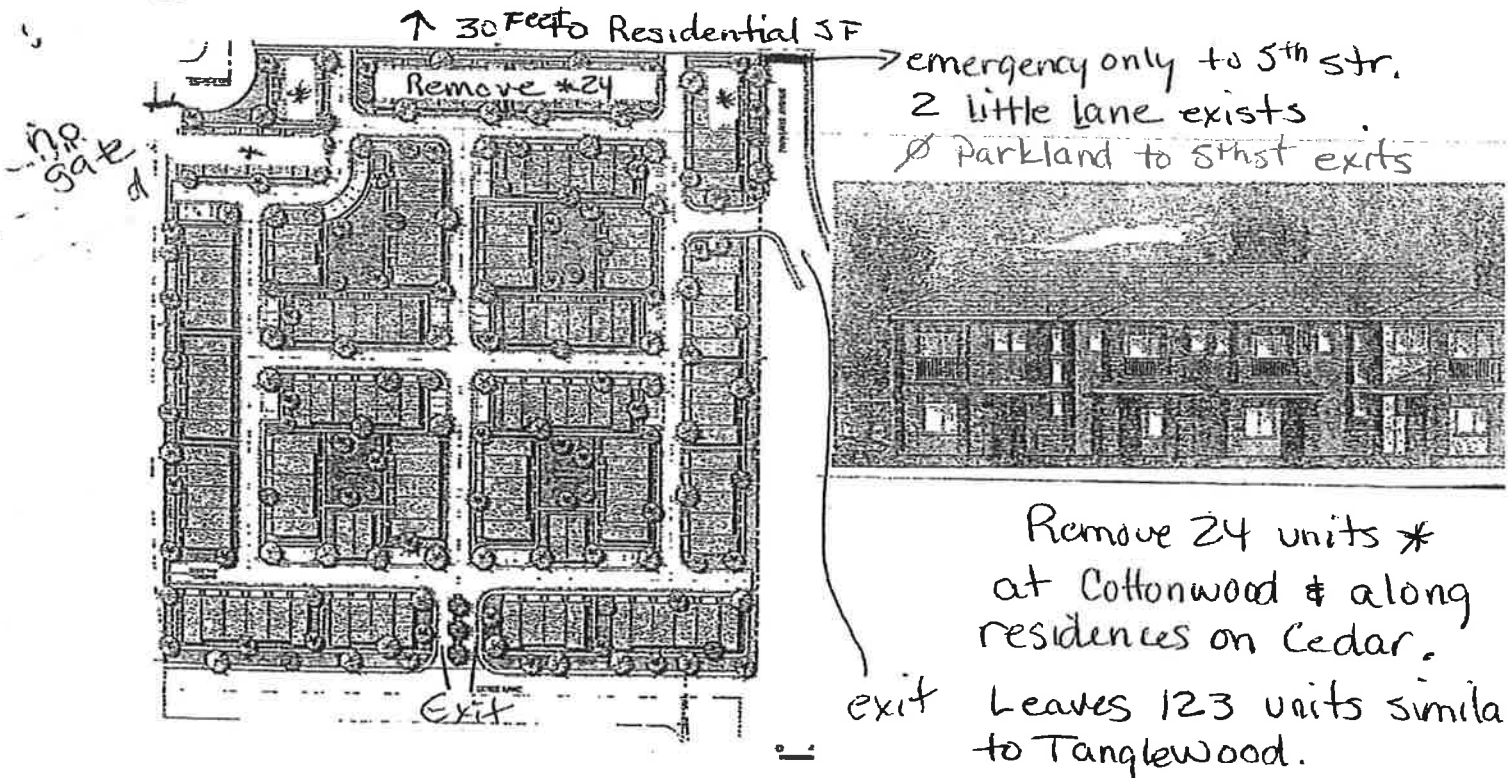 ↑ 30 Feet to Residential SF
Remove *24
*
*
*
→ emergency only to 5th str.
2 little lane exists
Ø Parkland to 5th st exits
gate
Exit
exit
Remove 24 units *
at Cottonwood & along
residences on Cedar.
Leaves 123 units simila
to Tanglewood.